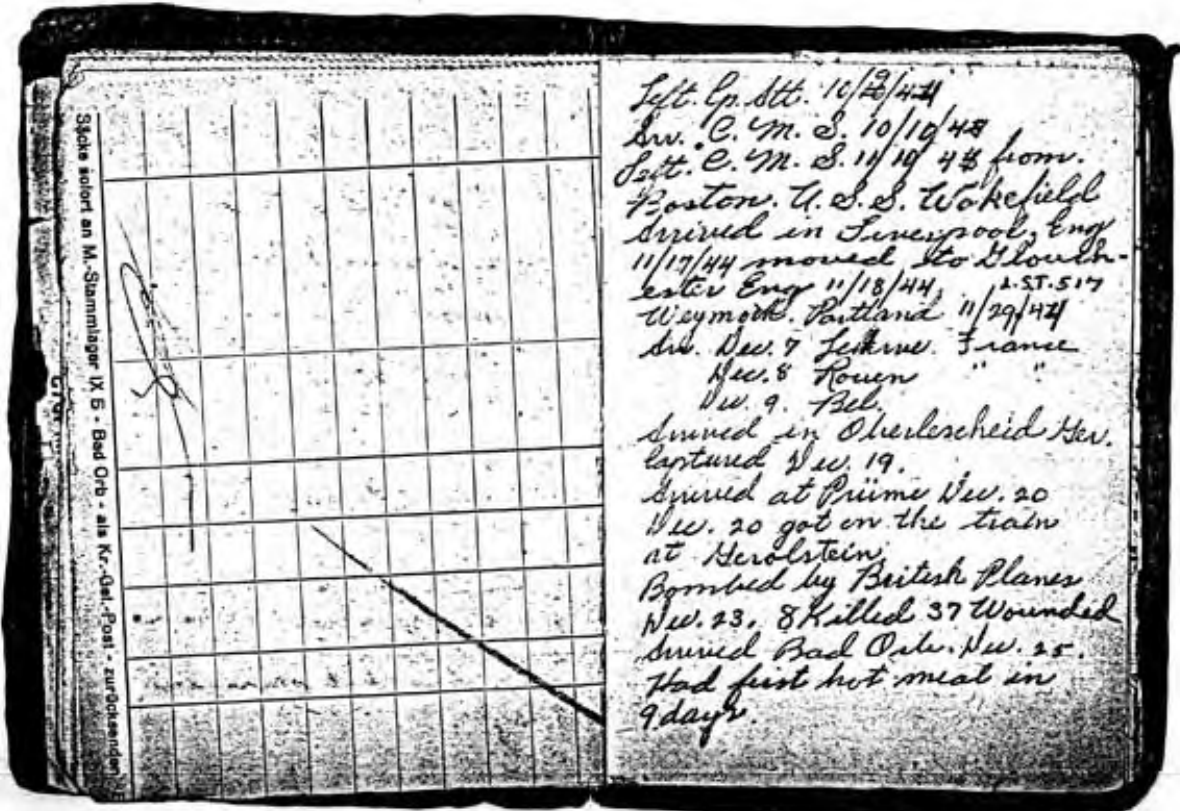 Säcke sofort an M.-Stammlager IX B - Bad Orb - als Kr.-Gef.-Post - zurücksenden
Left. Cp. Att. 10/9/44
Arr. C. M. S. 10/10/44
Left. C. M. S. 11/10 44 from.
Boston. U.S.S. Wakefield
Arrived in Liverpool, Eng
11/17/44 moved to Glouch-
ester Eng 11/18/44, L.S.T. 517
Weymoth. Portland 11/29/44
Arr. Dec. 7 Leharve. France
Dec. 8 Rouen " "
Dec. 9. Bel.
Arrived in Oberlescheid Ger.
Captured Dec. 19.
Arrived at Prüme Dec. 20
Dec. 20 got on the train
at Gerolstein
Bombed by British Planes
Dec. 23. 8 Killed 37 Wounded
Arrived Bad Orb. Dec. 25.
Had first hot meal in
9 days.